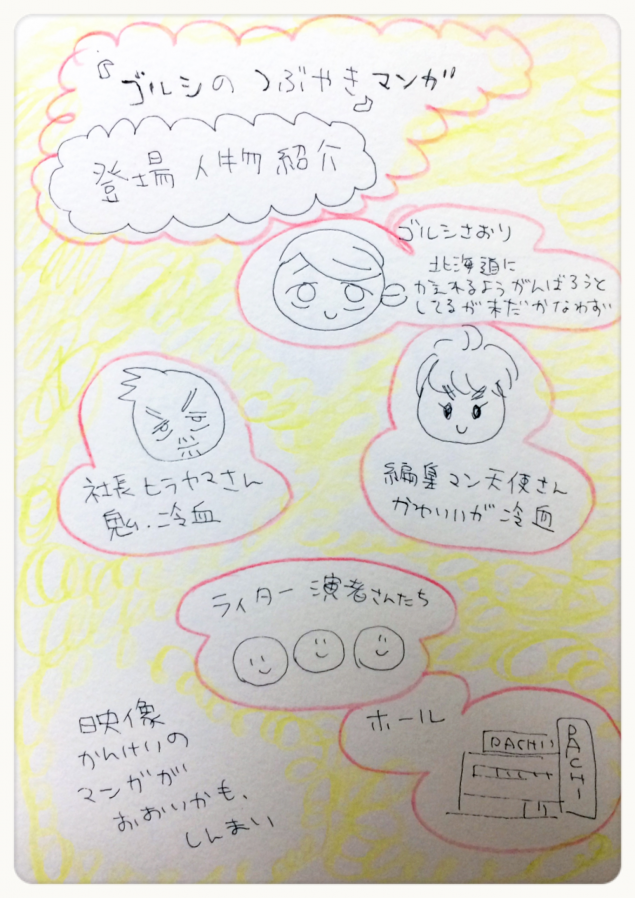 『ゴルシの つぶやき マンガ』
登場 人物 紹介
ゴルシさおり
北海道に
かえれるようがんばろうと
してるが未だかなわず
社長 ヒラヤマさん
鬼。冷血
編集マン天使さん
かわいいが冷血
ライター 演者さんたち
ホール
PACHI
PACHI
映像
かんけいの
マンガが
おおいかも、
しんまい